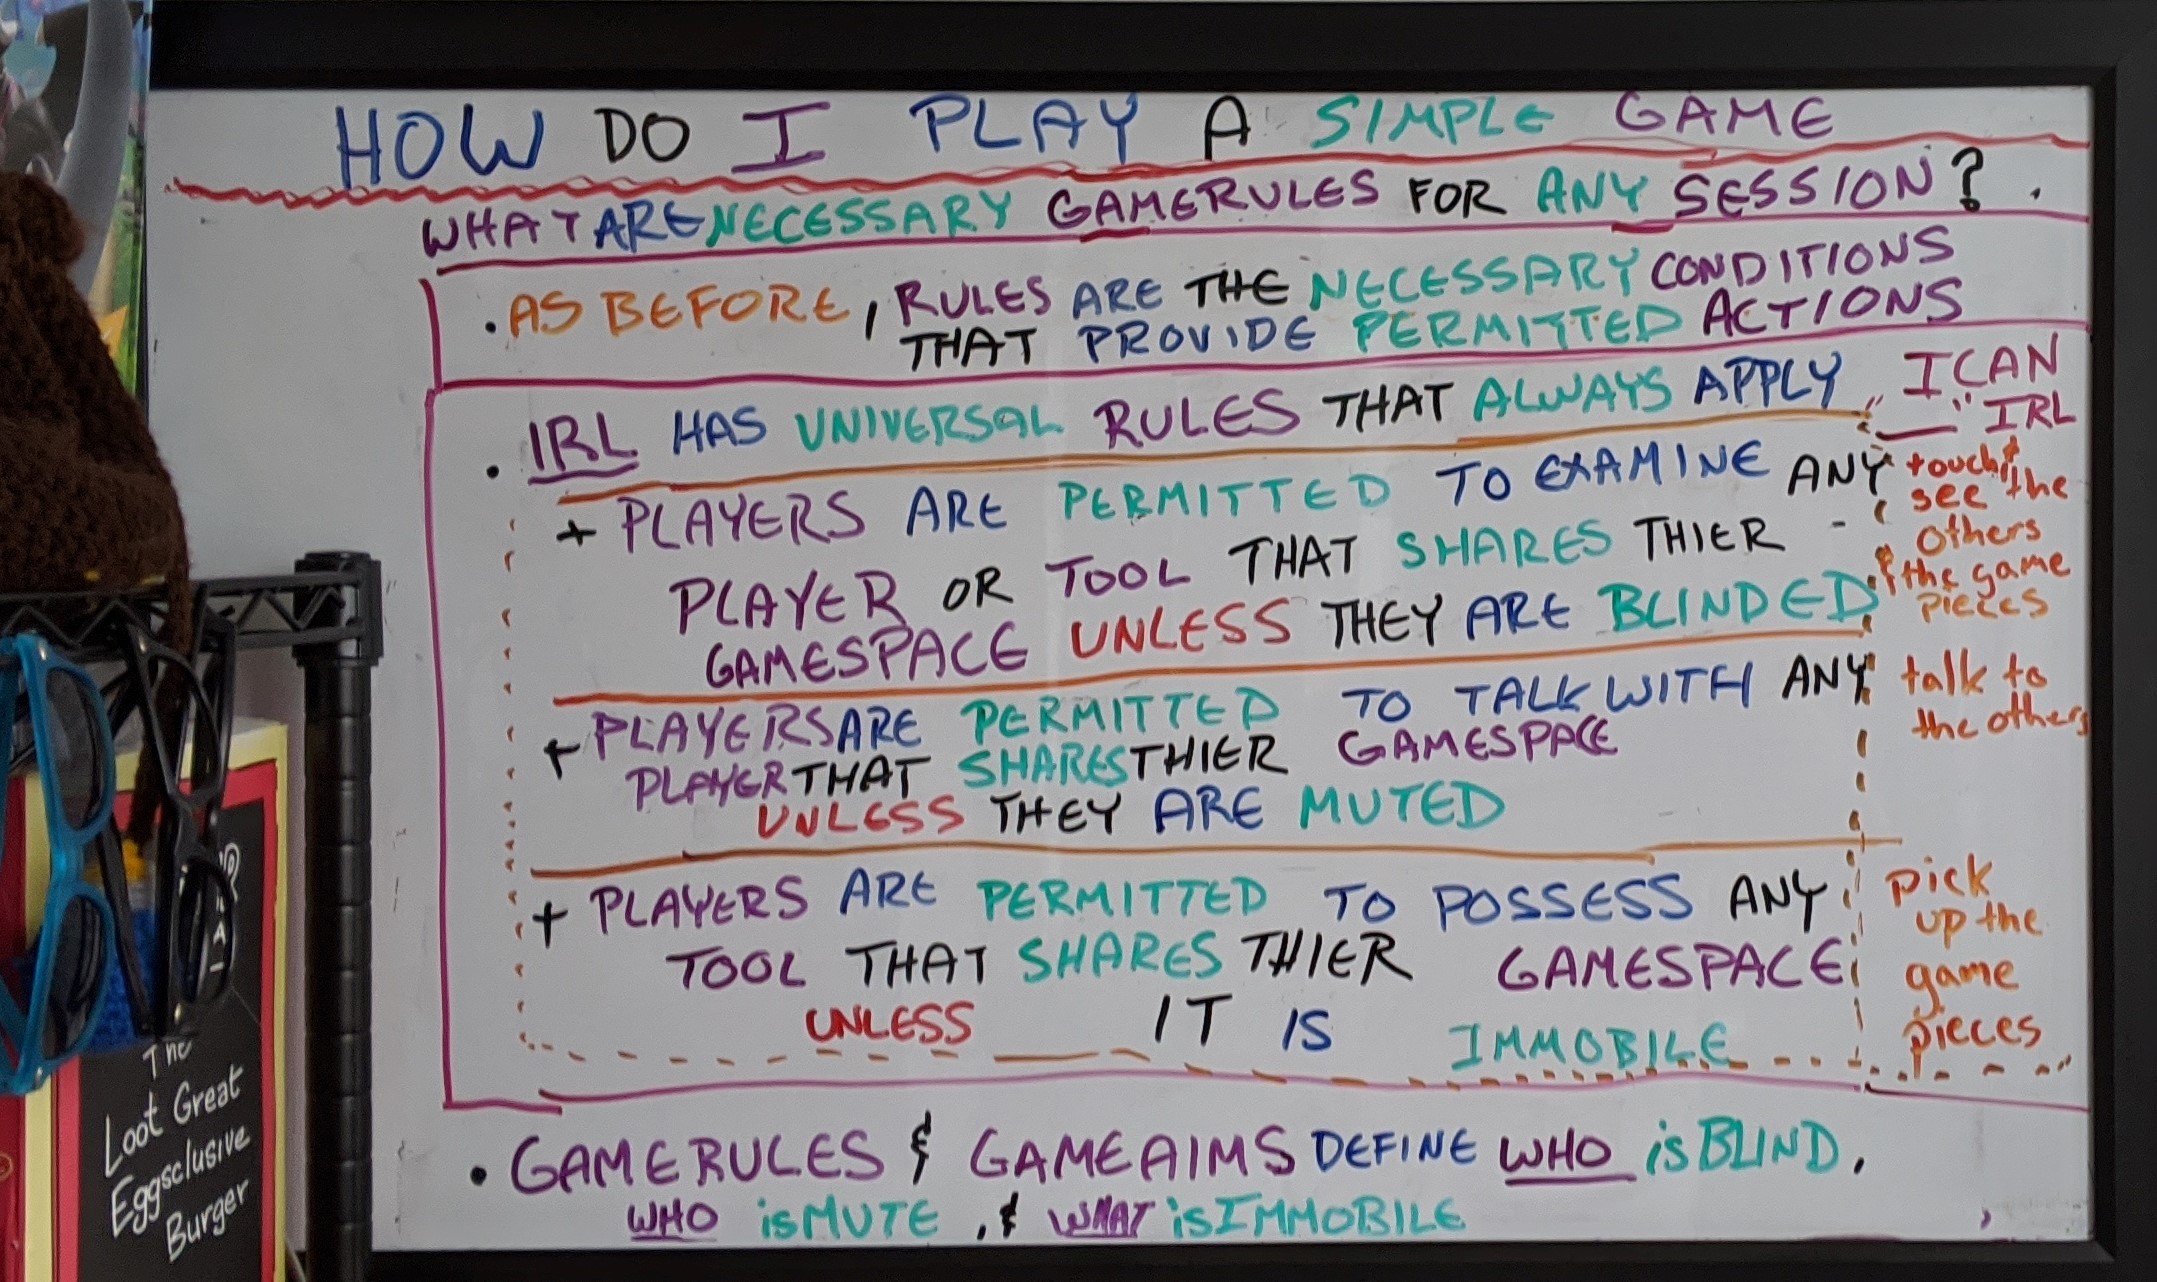 HOW DO I PLAY A SIMPLE GAME
WHAT ARE NECESSARY GAMERULES FOR ANY SESSION?
. AS BEFORE, RULES ARE THE NECESSARY CONDITIONS
THAT PROVIDE PERMITTED ACTIONS
. IRL HAS UNIVERSAL RULES THAT ALWAYS APPLY
+ PLAYERS ARE PERMITTED TO EXAMINE ANY
PLAYER OR TOOL THAT SHARES THIER -
GAMESPACE UNLESS THEY ARE BLINDED
+ PLAYERS ARE PERMITTED TO TALK WITH ANY
PLAYER THAT SHARES THIER GAMESPACE
UNLESS THEY ARE MUTED
+ PLAYERS ARE PERMITTED TO POSSESS ANY
TOOL THAT SHARES THIER GAMESPACE
UNLESS IT IS IMMOBILE
"I CAN
" IRL
touch &
see the
others
& the game
pieces
talk to
the others
pick
up the
game
pieces
. GAMERULES & GAMEAIMS DEFINE WHO is BLIND,
WHO is MUTE, & WHAT is IMMOBILE
The
Loot Great
Eggsclusive
Burger